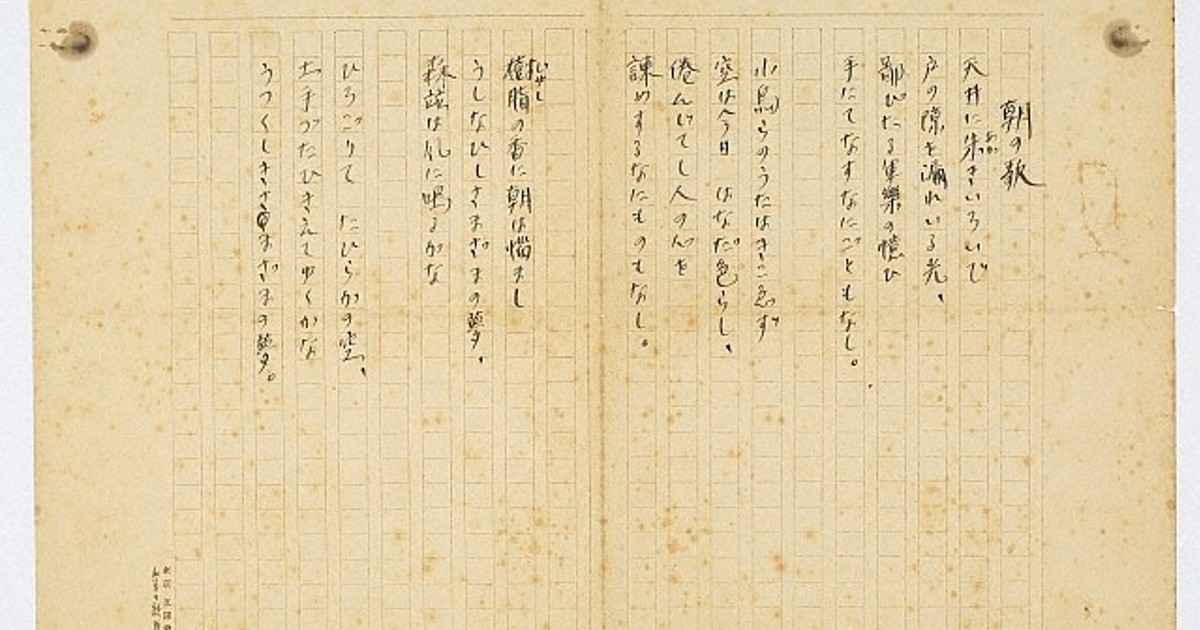 朝の歌
天井に朱きいろいで
あか
戸の隙を漏れいる光、
鄙びたる軍樂の憶ひ
手にてなすなにごともなし。
小鳥らのうたはきこえず
空は今日 はなだ色らし、
倦んじてし人の心を
諫めするなにものもなし。
樹脂の香に朝は惱まし
うしなひしさまざまの夢、
森竝は風に鳴るかな
ひろごりて たひらかの空、
土手づたひきえてゆくかな
うつくしきさまざまの夢。